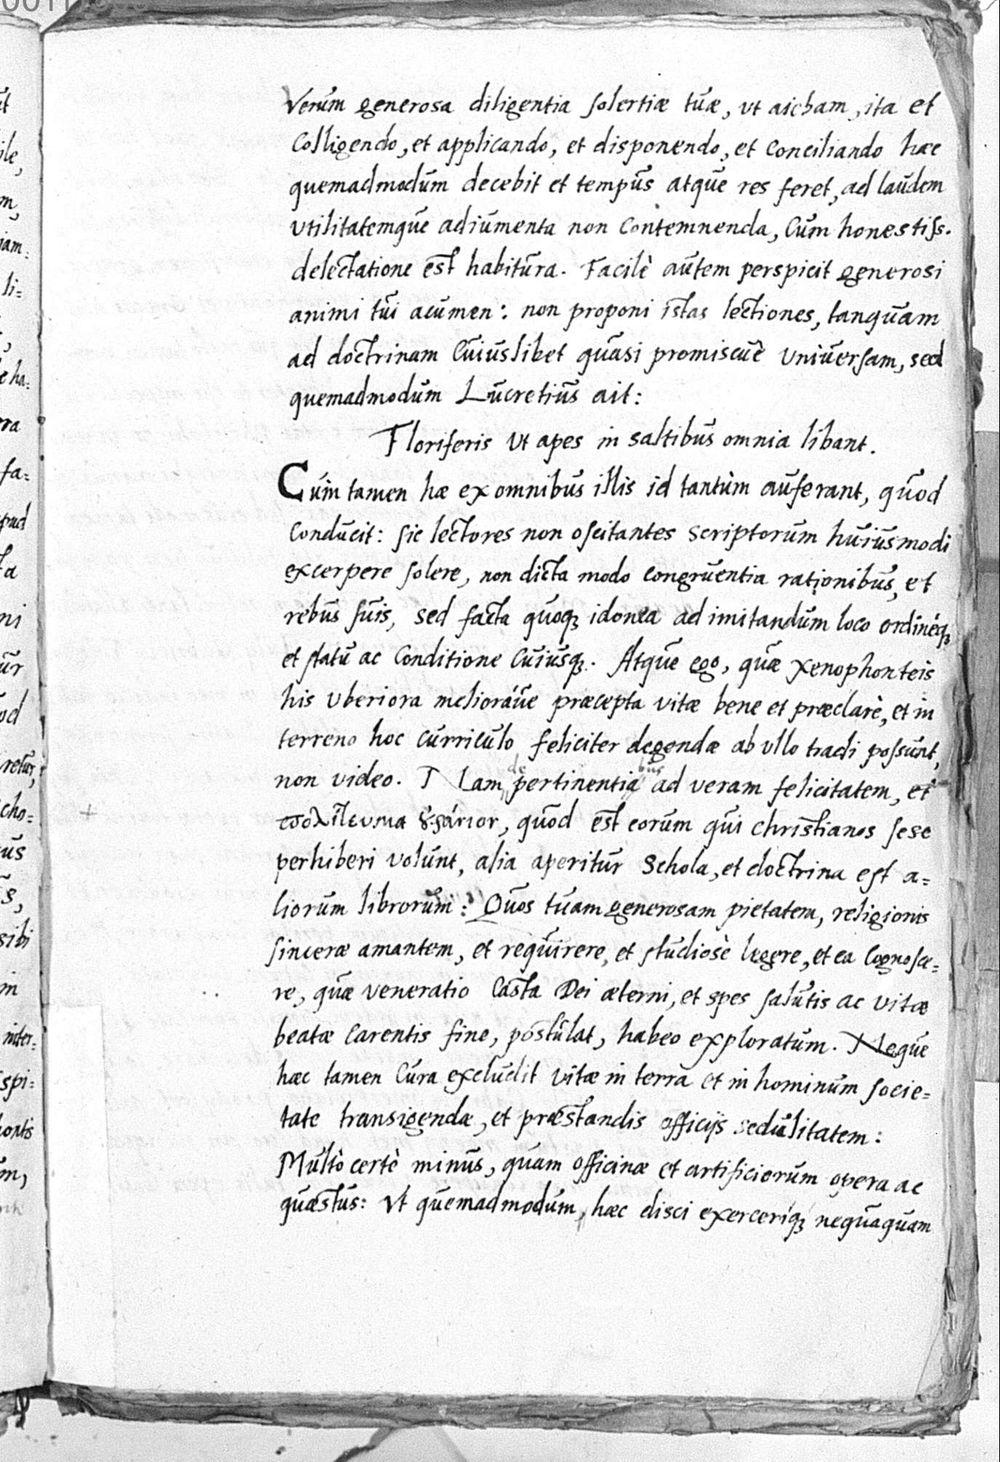 Verum generosa diligentia solertiæ tuæ, vt aiebam, ita et
Colligendo, et applicando, et disponendo, et Conciliando hæc
quemadmodum decebit et tempus atque res feret, ad laudem
vtilitatemque adiumenta non Contemnenda, Cum honestiss.
delectatione est habitura. Facilè autem perspicit generosi
animi tui acumen: non proponi istas lectiones, tanquam
ad doctrinam Cuiuslibet quasi promiscuè vniuersam, sed
quemadmodum Lucretius ait:
Floriferis Vt apes in saltibus omnia libant.
Cum tamen hæ ex omnibus illis id tantùm auferant, quod
Conducit: sic lectores non oscitantes Scriptorum huiusmodi
excerpere solere, non dicta modo congruentia rationibus, et
rebus suis, sed facta quoq3 idonea ad imitandum loco ordineq3
et statu ac Conditione Cuiusq3. Atque ego, quæ Xenophonteis
his Vberiora melioráue præcepta vitæ bene et præclarè, et in
terreno hoc Curriculo feliciter degendæ ab vllo tradi possunt,
non video. Nam de pertinentibus ad veram felicitatem, et
πολίτευμα ὀυράνιον, quod est eorum qui christianos sese
perhiberi volunt, alia aperitur Schola, et doctrina est a=
liorum librorum: Quos tuam generosam pietatem, religionis
sinceræ amantem, et requirere, et studiosè legere, et ea Cognosce=
re, quæ veneratio Casta Dei æterni, et spes salutis ac vitæ
beatæ Carentis fine, postulat, habeo exploratum. Neque
hæc tamen Cura excludit vitæ in terra et in hominum socie=
tate transigendæ, et præstandis officijs sedulitatem:
Multò certè minus, quam officinæ et artificiorum opera ac
quæstus: Vt quemadmodum, hæc disci exerceriq3 nequaquam